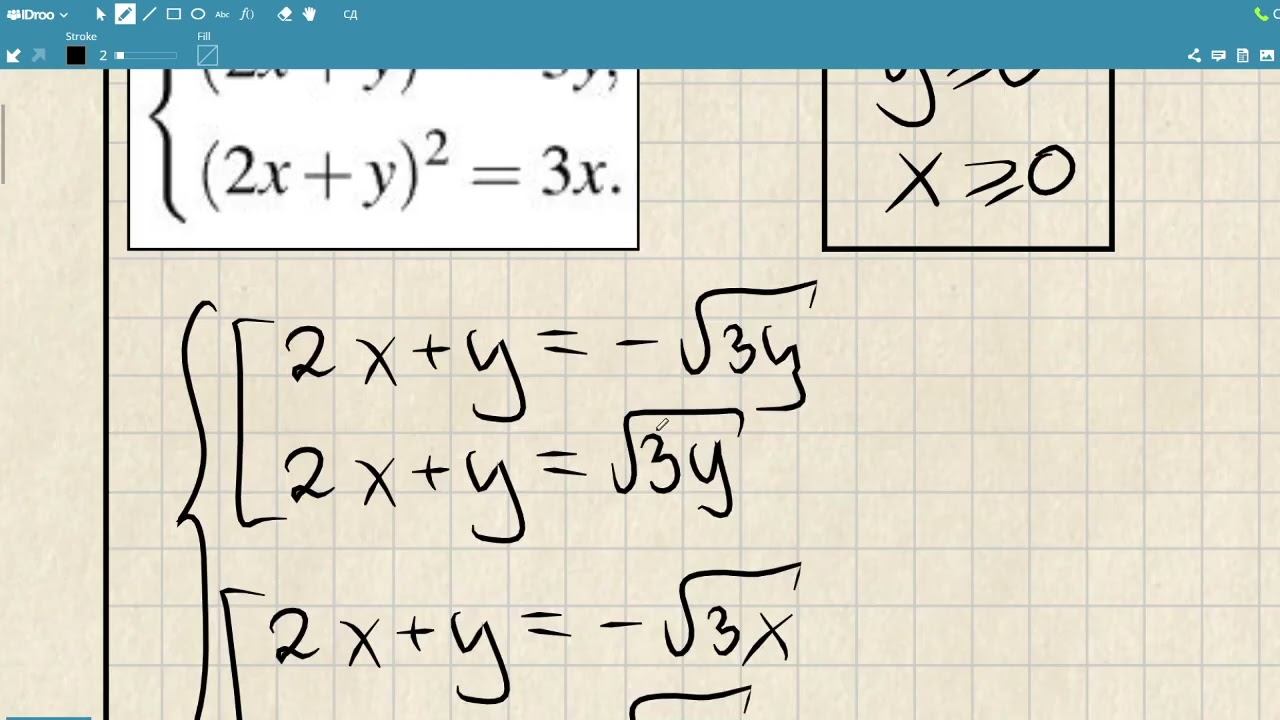 IDroo
Abc
f()
СД
Stroke
2
Fill
(2x + y) 3y,
(2x + y)² = 3x.
y ⩾ 0
x ⩾ 0
2x + y = - √3y
2x + y = √3y
2x + y = - √3x